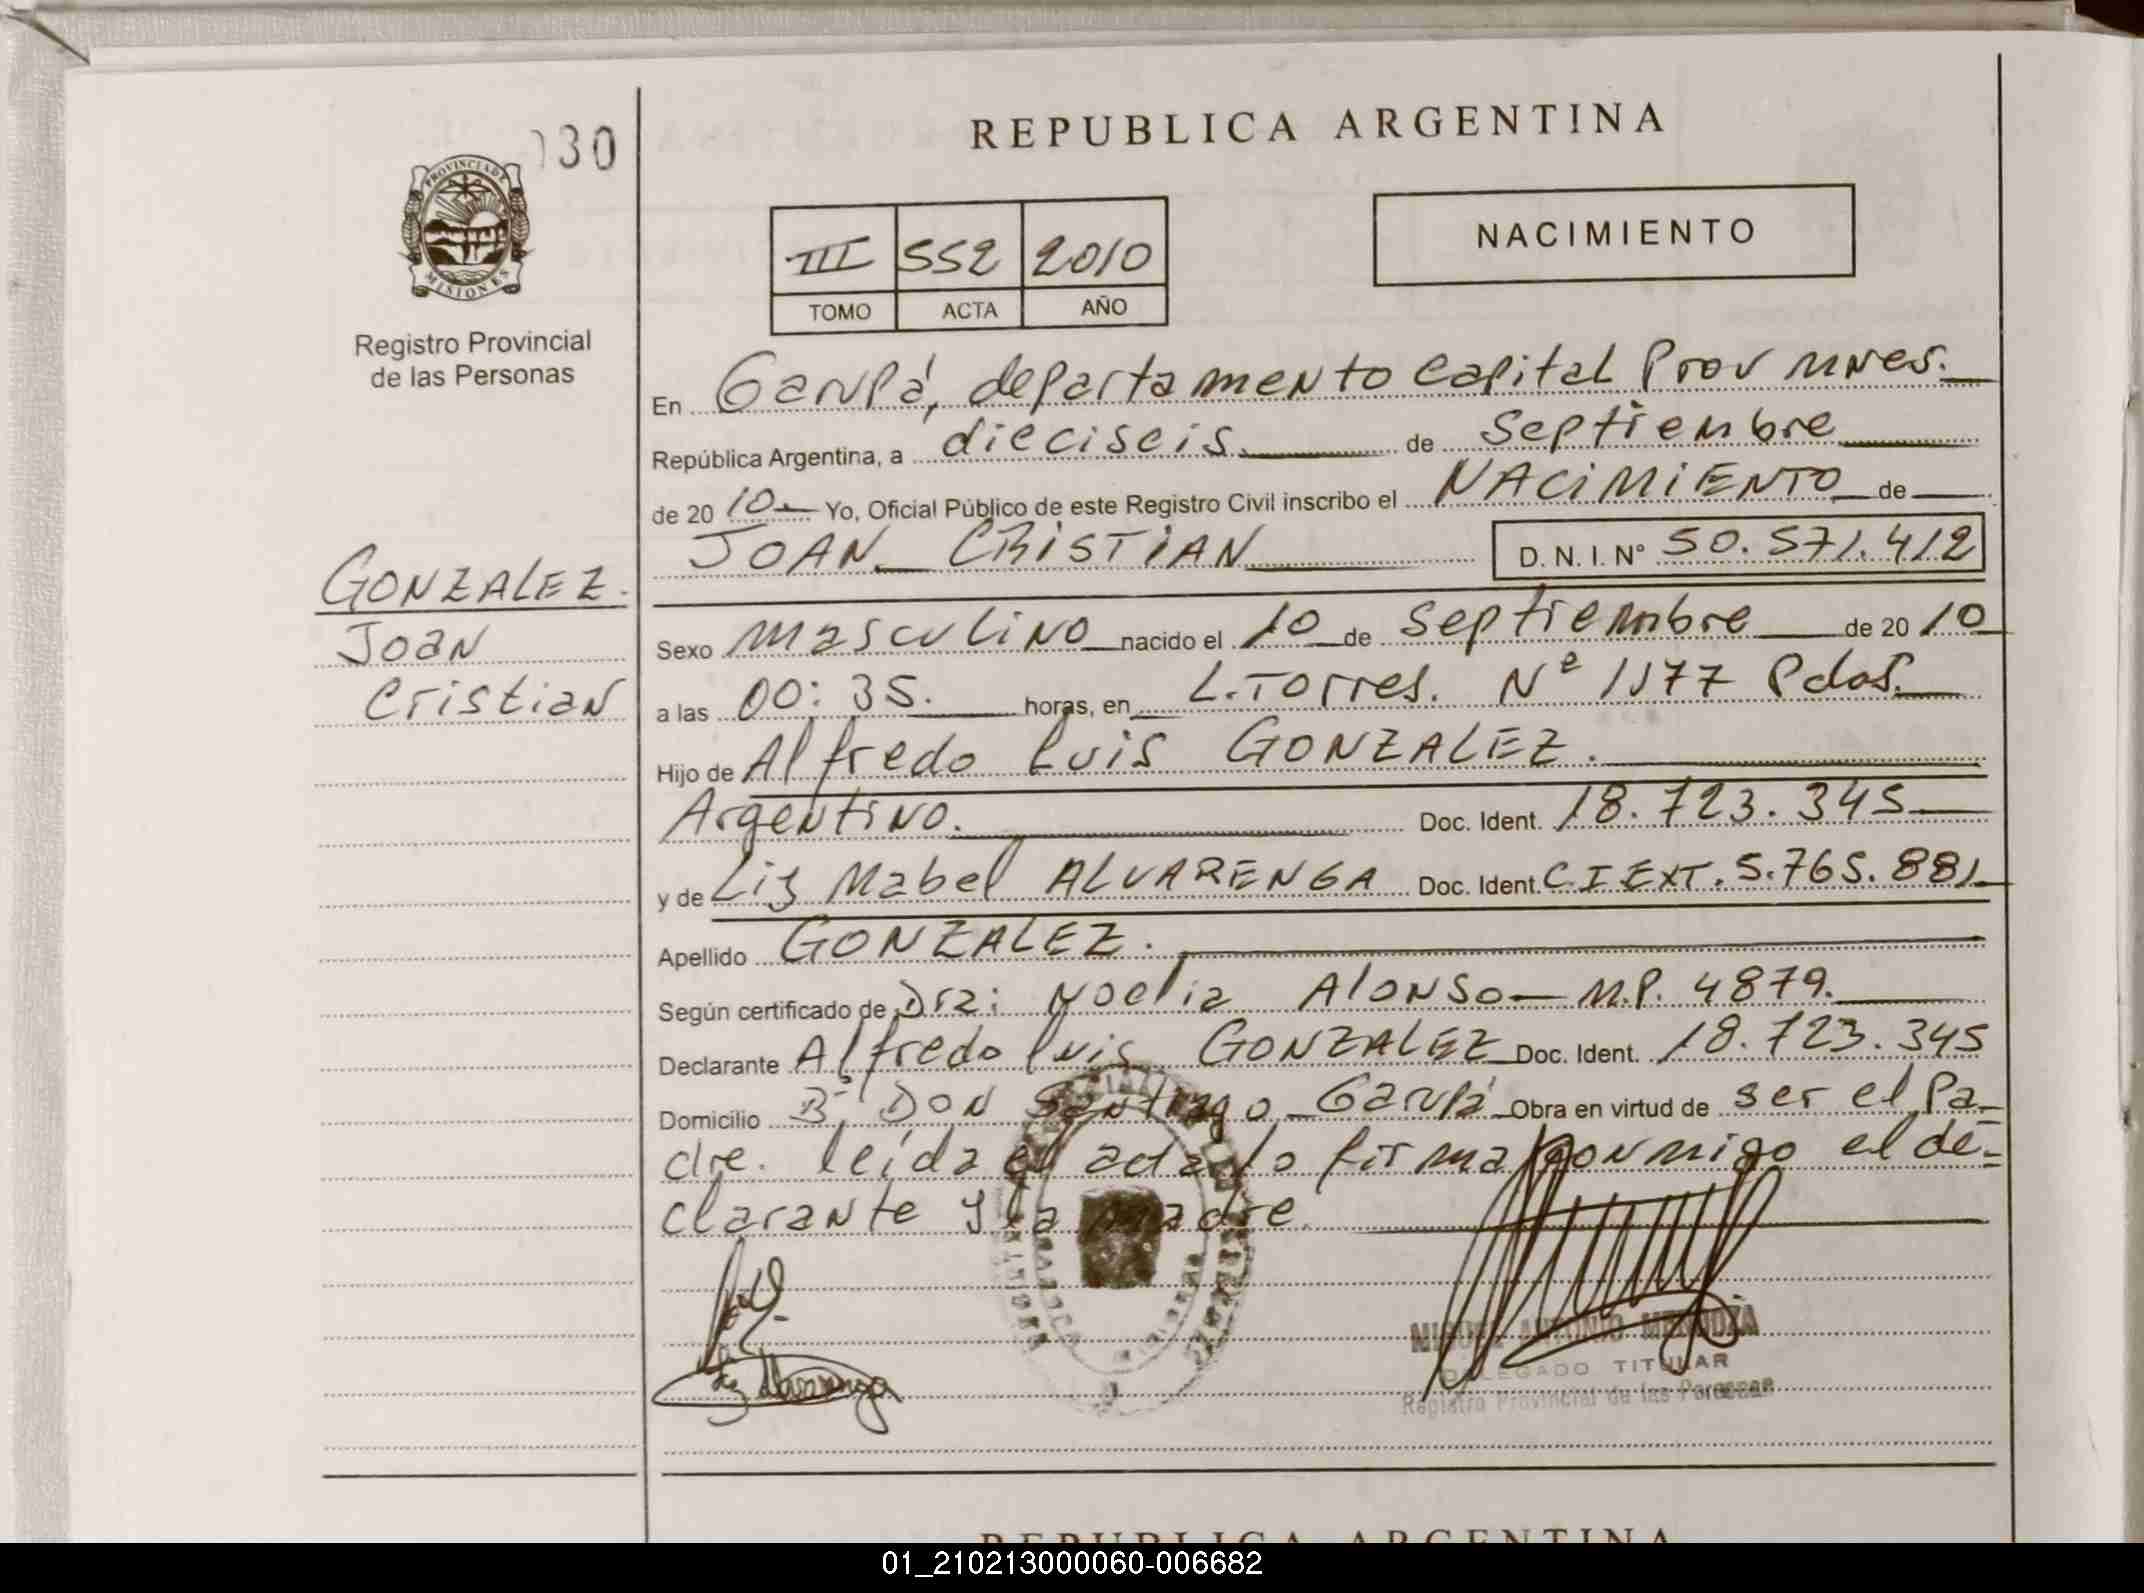 030
PROVINCIA DE
MISIONES
Registro Provincial
de las Personas
GONZALEZ.
Joan
Cristian
REPUBLICA ARGENTINA
III 552 2010
TOMO ACTA AÑO
NACIMIENTO
En Garupá, departamento Capital Prov Mnes.
República Argentina, a dieciseis de Septiembre
de 2010 Yo, Oficial Público de este Registro Civil inscribo el NACIMIENTO de
JOAN CRISTIAN D. N. I. N° 50.571.412
Sexo masculino nacido el 10 de Septiembre de 2010
a las 00:35. horas, en L. Torres. Nº 1177 Pdas.
Hijo de Alfredo Luis GONZALEZ.
Argentino. Doc. Ident. 18.723.345
y de Liz Mabel ALVARENGA Doc. Ident. C.I EXT. 5.765.881
Apellido GONZALEZ.
Según certificado de Dra: Noelia Alonso - M.P. 4879.
Declarante Alfredo Luis GONZALEZ Doc. Ident. 18.723.345
Domicilio Bº Don Santiago Garupá Obra en virtud de ser el pa-
dre. leída el acta lo firma conmigo el de-
clarante y la madre.
MIGUEL ANTONIO MENDOZA
DELEGADO TITULAR
Registro Provincial de las Personas
REPUBLICA ARGENTINA
01_210213000060-006682